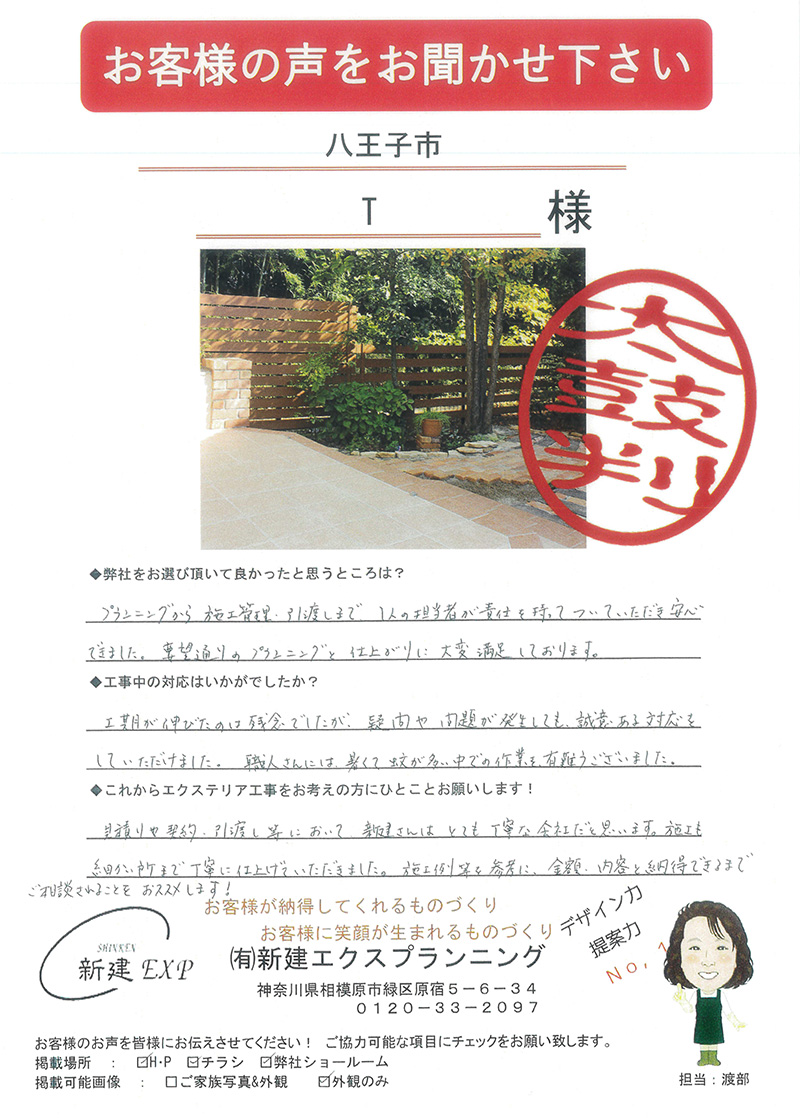 お客様の声をお聞かせ下さい
八王子市
T 様
太鼓判
◆弊社をお選び頂いて良かったと思うところは？
プランニングから施工管理・引渡しまで 1人の担当者が責任を持ってついていただき安心
できました。要望通りのプランニングと仕上がりに大変満足しております。
◆工事中の対応はいかがでしたか？
工期が伸びたのは残念でしたが、疑問や問題が発生しても、誠意ある対応を
していただけました。職人さんには、暑くて蚊が多い中での作業を有難うございました。
◆これからエクステリア工事をお考えの方にひとことお願いします！
見積りや契約・引渡し等において、新建さんはとても丁寧な会社だと思います。施工も
細かい所まで丁寧に仕上げていただきました。施工例等を参考に、金額・内容と納得できるまで
ご相談されることをおススメします！
お客様が納得してくれるものづくり
お客様に笑顔が生まれるものづくり
デザイン力
提案力
No,1
SHINKEN
新建EXP
㈲新建エクスプランニング
神奈川県相模原市緑区原宿５－６－３４
０１２０－３３－２０９７
お客様のお声を皆様にお伝えさせてください！ ご協力可能な項目にチェックをお願い致します。
掲載場所 ： ☑H･P ☑チラシ ☑弊社ショールーム
掲載可能画像 ： □ご家族写真&外観 ☑外観のみ
担当：渡部